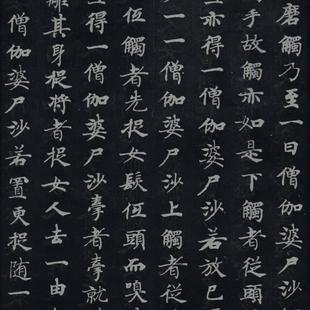 磨觸乃至一曰僧伽婆尸沙
手故觸亦如是下觸者從頭
亦得一僧伽婆尸沙若放已
一一僧伽婆尸沙上觸者從
低觸者先捉女髮低頭而嗅
得一僧伽婆尸沙搴者搴就
離其身捉將者捉女人去一由
僧伽婆尸沙若置更捉隨一